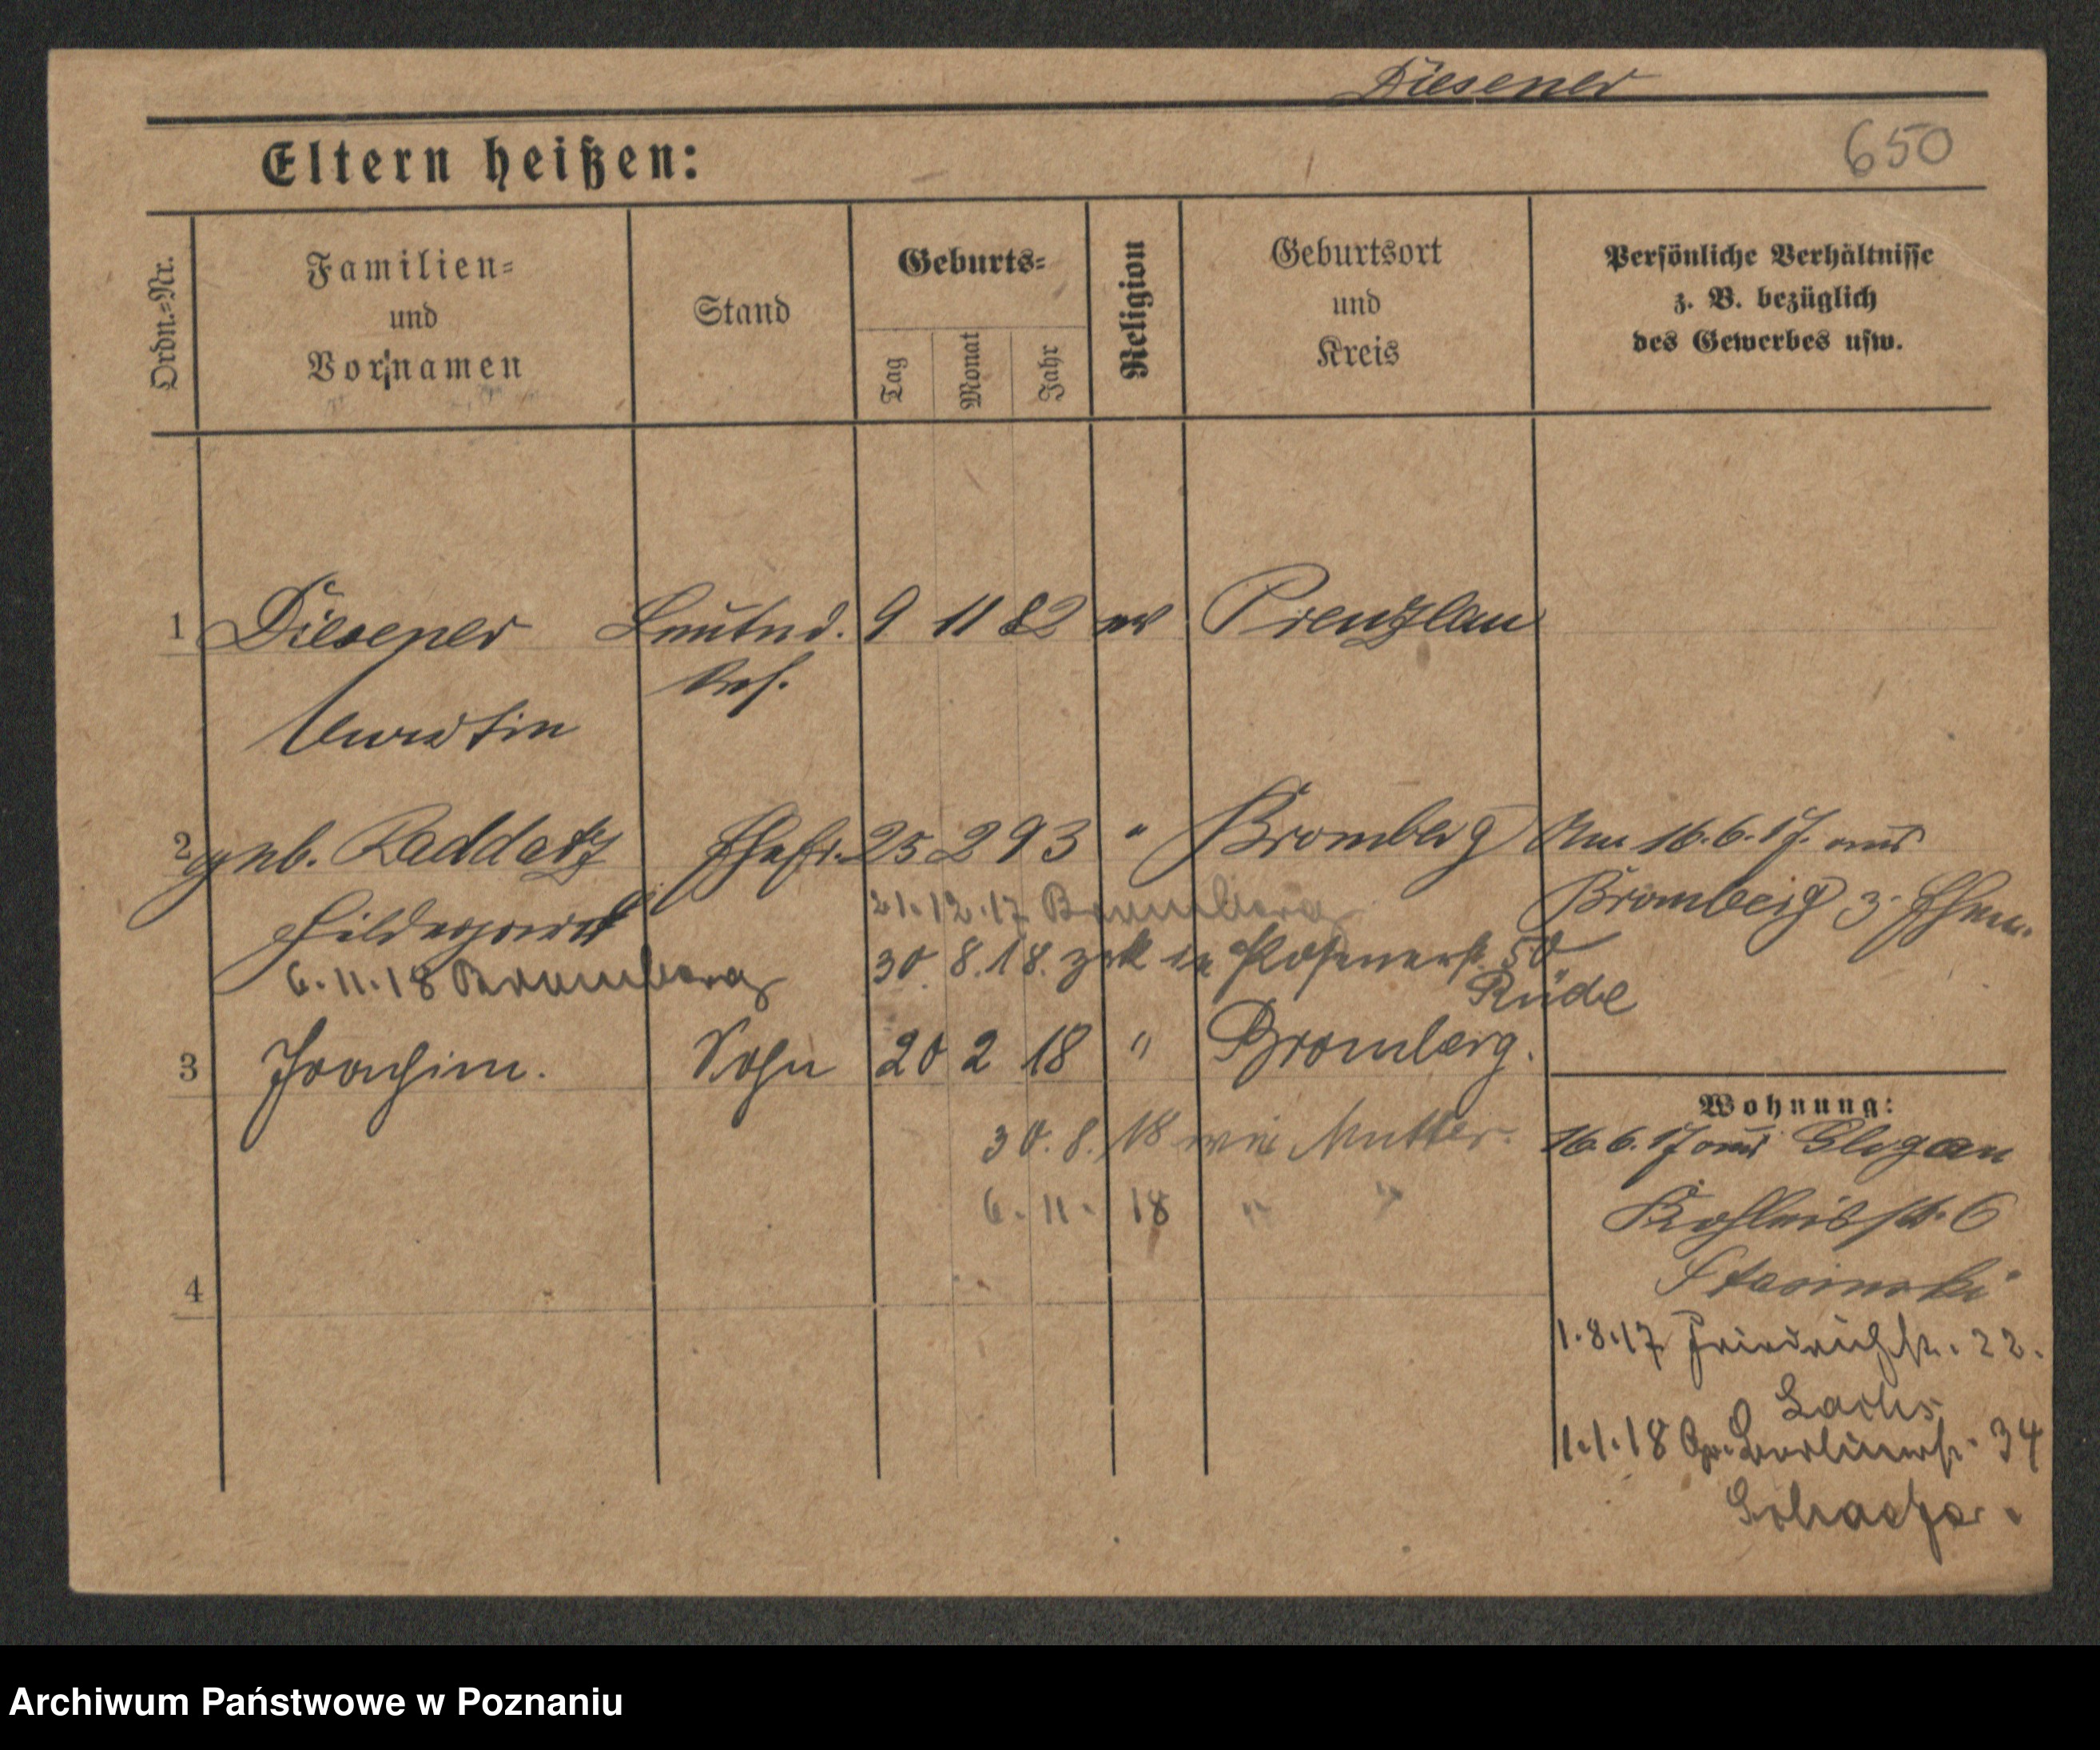 Diesener
650
Eltern heißen:
Ordn.=Nr.
Familien=
und
Vornamen
Stand
Geburts=
Tag
Monat
Jahr
Religion
Geburtsort
und
Kreis
Persönliche Verhältnisse
z. B. bezüglich
des Gewerbes usw.
1 Diesener Leutnd. 9 11 82 ev Prenzlau
2 geb. Raddatz Ehefr. 25 2 93 " Bromberg Am 16.6.17. aus
Hildegard 21.12.17 Bromberg Bromberg z. Ehem.
6.11.18 Bromberg 30.8.18. zrk in Posenerst. 50
Rüde
3 Joachim. Sohn 20 2 18 " Bromberg.
Wohnung:
30.8.18 wie Mutter. 16.6.17 aus Glogau
6.11.18 " "
6
4 Stasinski
1.8.17 Friedrichstr. 22.
Sachs
1.1.18 Gr. Berlinerst. 34